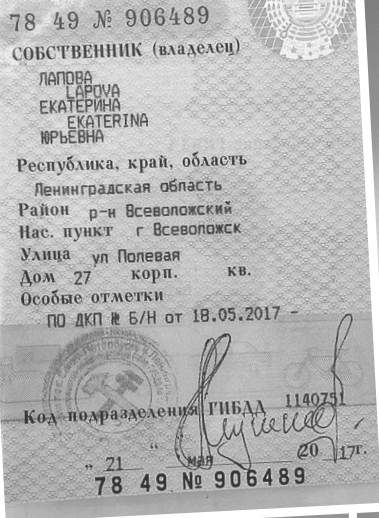 78 49 № 906489
СОБСТВЕННИК (владелец)
ЛАПОВА
LAPOVA
ЕКАТЕРИНА
EKATERINA
ЮРЬЕВНА
Республика, край, область
Ленинградская область
Район р-н Всеволожский
Нас. пункт г Всеволожск
Улица ул Полевая
Дом 27 корп. кв.
Особые отметки
ПО ДКП № Б/Н от 18.05.2017 -
Код подразделения ГИБДД 1140751
„ 21 " мая 2017г.
78 49 № 906489